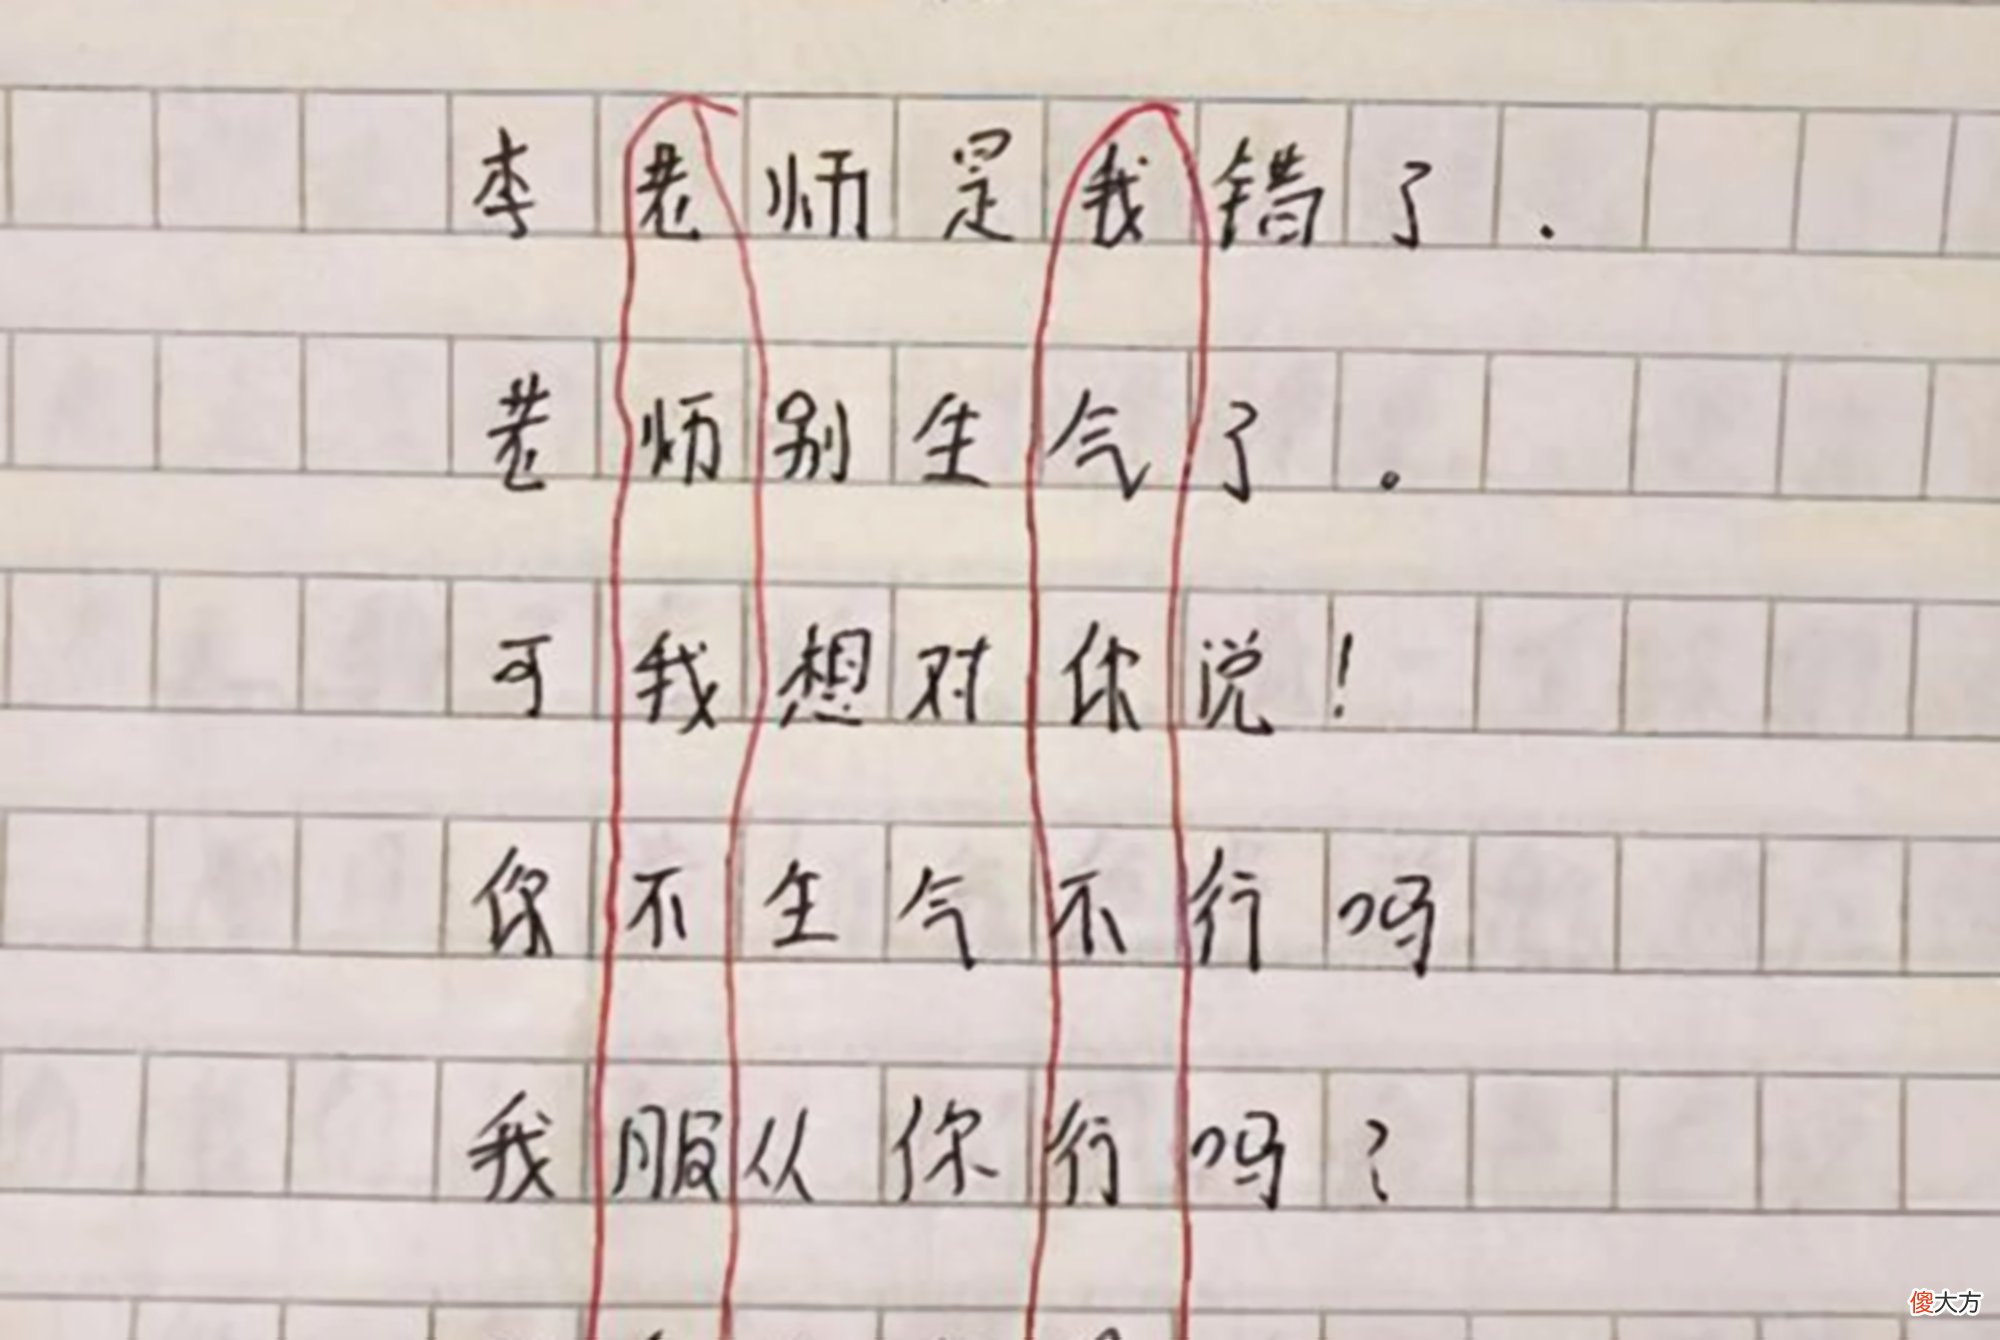 李老师是我错了.
老师别生气了。
可我想对你说!
你不生气不行吗
我服从你行吗?
傻大方